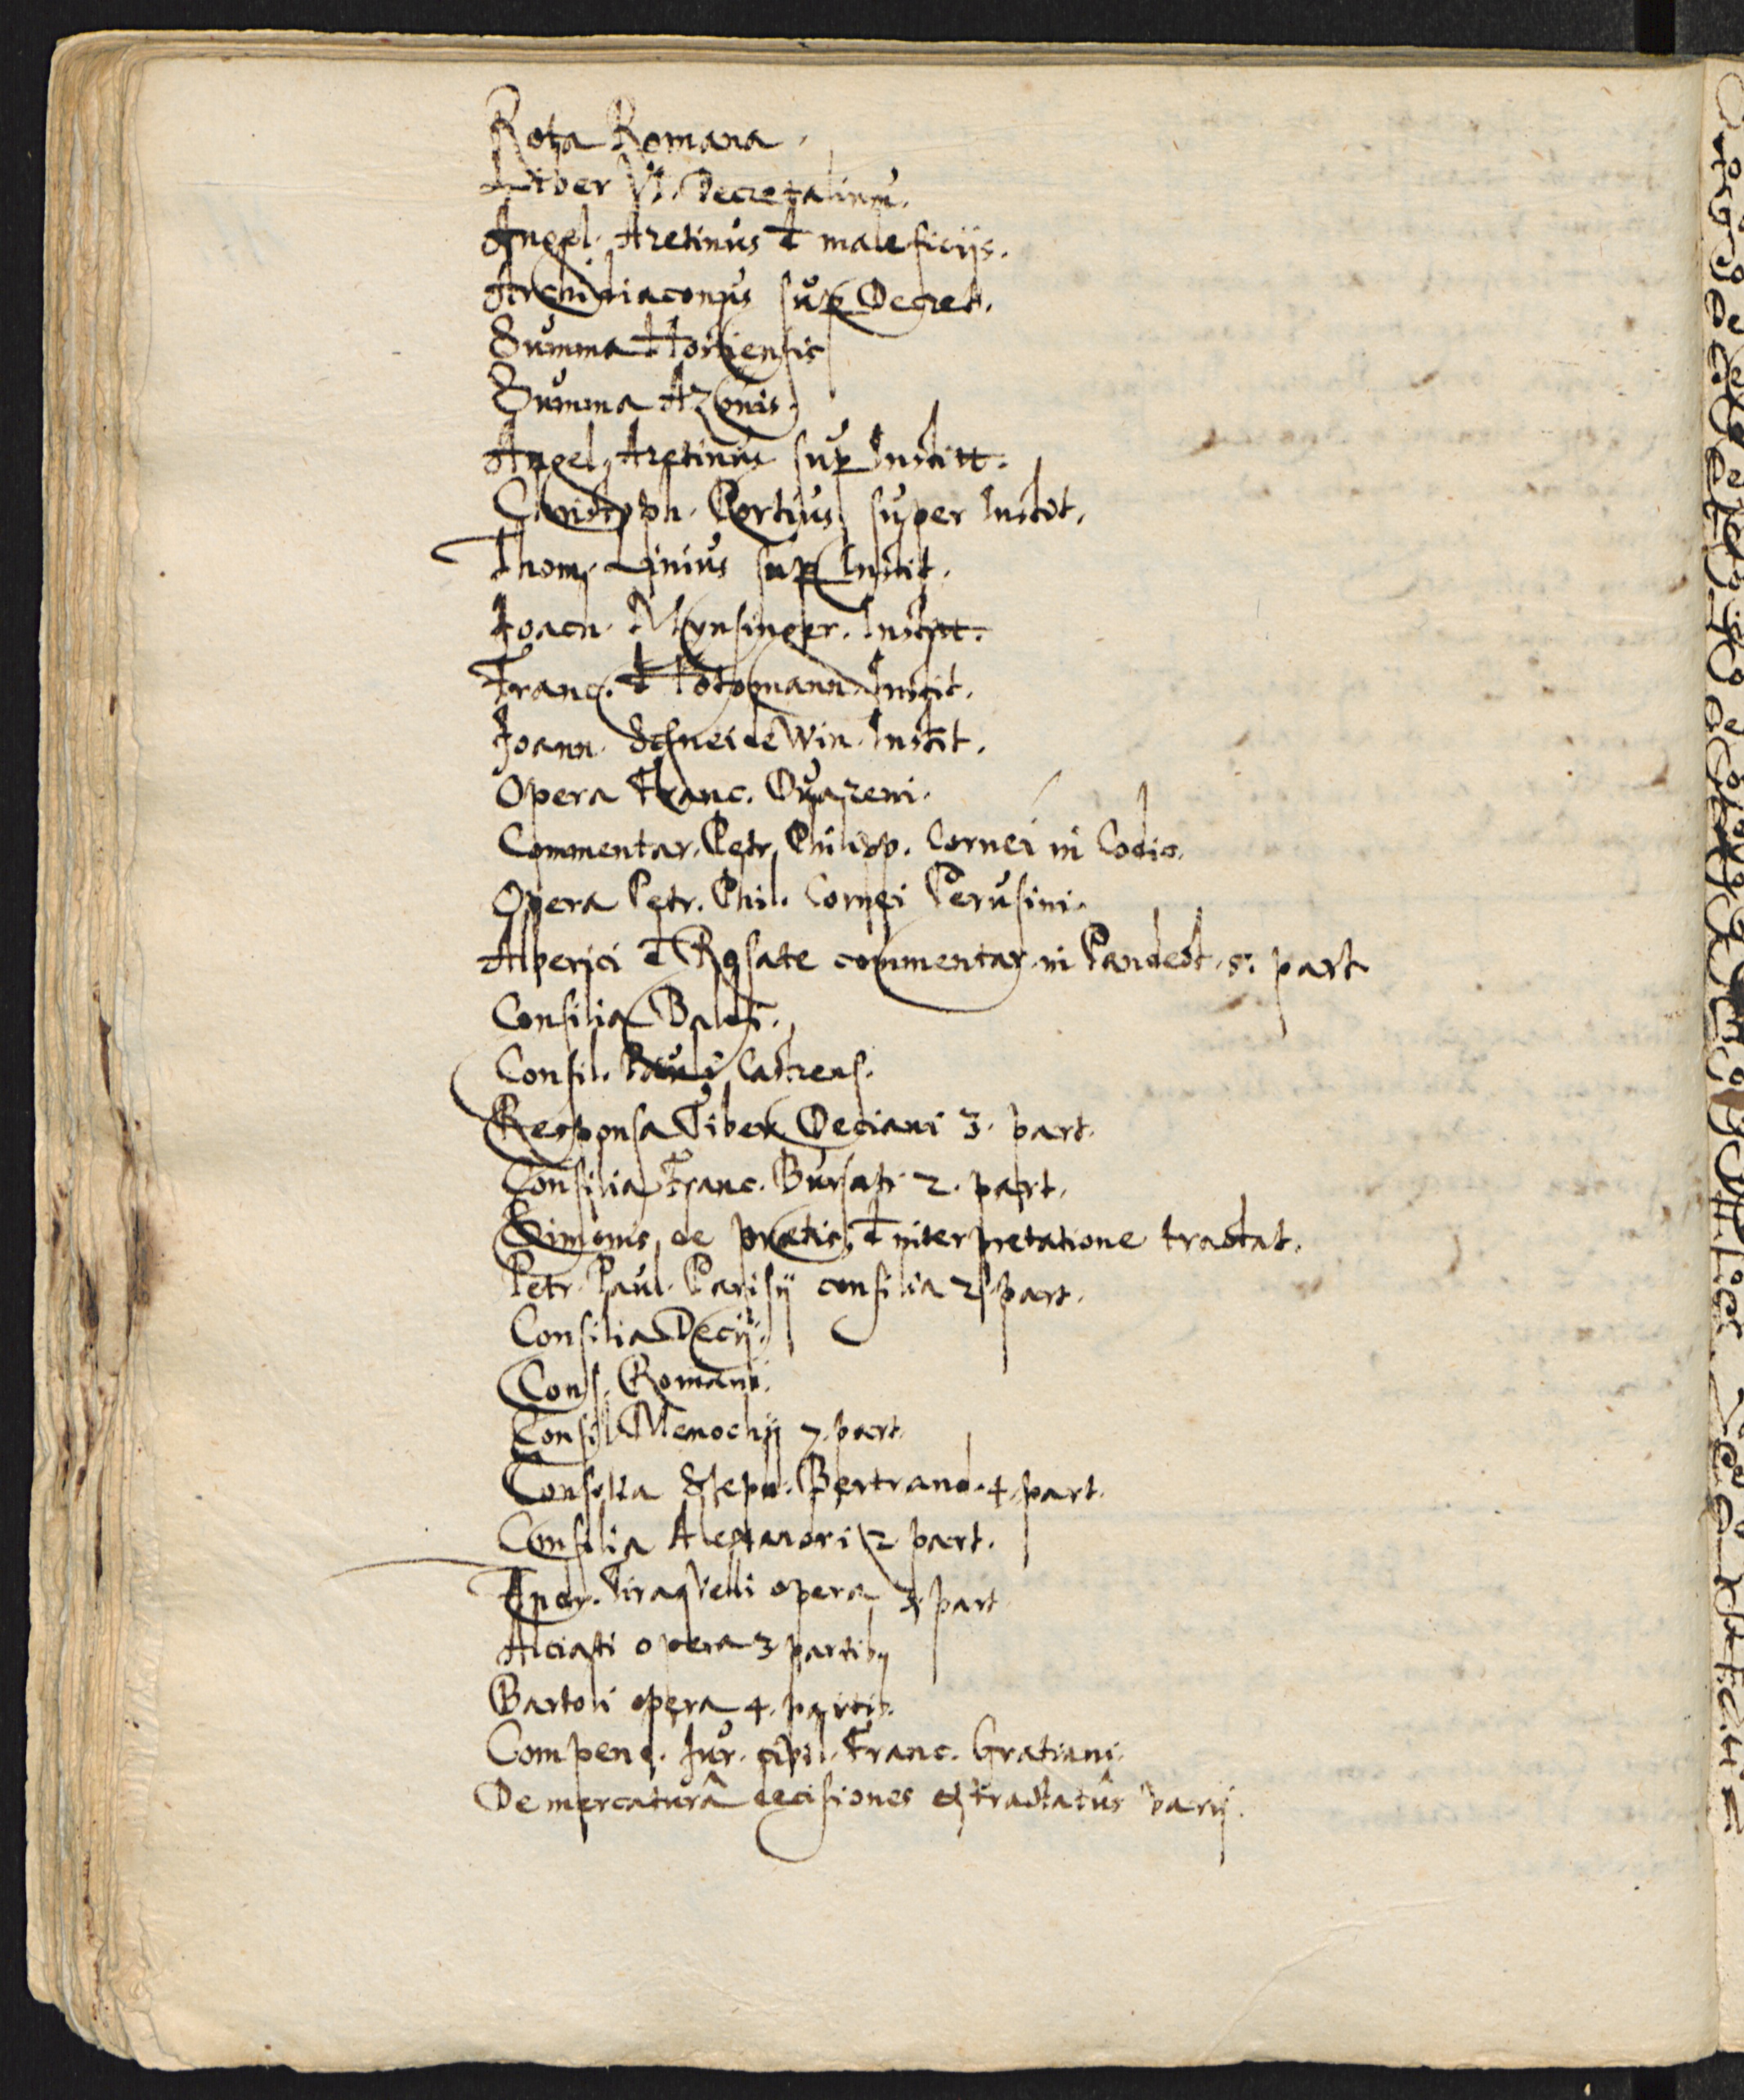 Rota Romana.
Liber VI. Decretalium.
Angel. Aretinus đ maleficijs.
Archidiaconus sup Decret.
Summa Hostiensis
Summa Azonis.
Angel. Aretinus sup Institt.
Christoph. Portius super Instit.
Thom. Linius sup Instit.
Joach. Mynsinger. Instit.
Franc. Hotomann. Instit.
Joann. Schneidewin. Instit.
Opera Franc. Duareni.
Commentar. Petr. Philipp. Cornei in Codic.
Opera Petr. Phil. Cornei Perusini.
Alberici đ Rosate commentar. in Pandect. 5. part
Consilia Baldi.
Consil. Pauli Castrens.
Responsa Tiber. Deciani 3. part.
Consilia Franc. Bursati 2. part.
Simonis de praetis, đ interpretatione tractat.
Petr. Paul. Parisij consilia 2. part.
Consilia Decij.
Cons. Romani.
Consil. Menochij 7. part.
Consilia Steph. Bertrand. 4. part.
Consilia Alexandri 2 part.
Andr. Tiraqvelli opera part
Alciati opera 3 partiby
Bartoli opera 4. partib.
Compend. Jur. civil. Franc. Gratiani.
De mercaturâ decisiones et tractatûs varij.